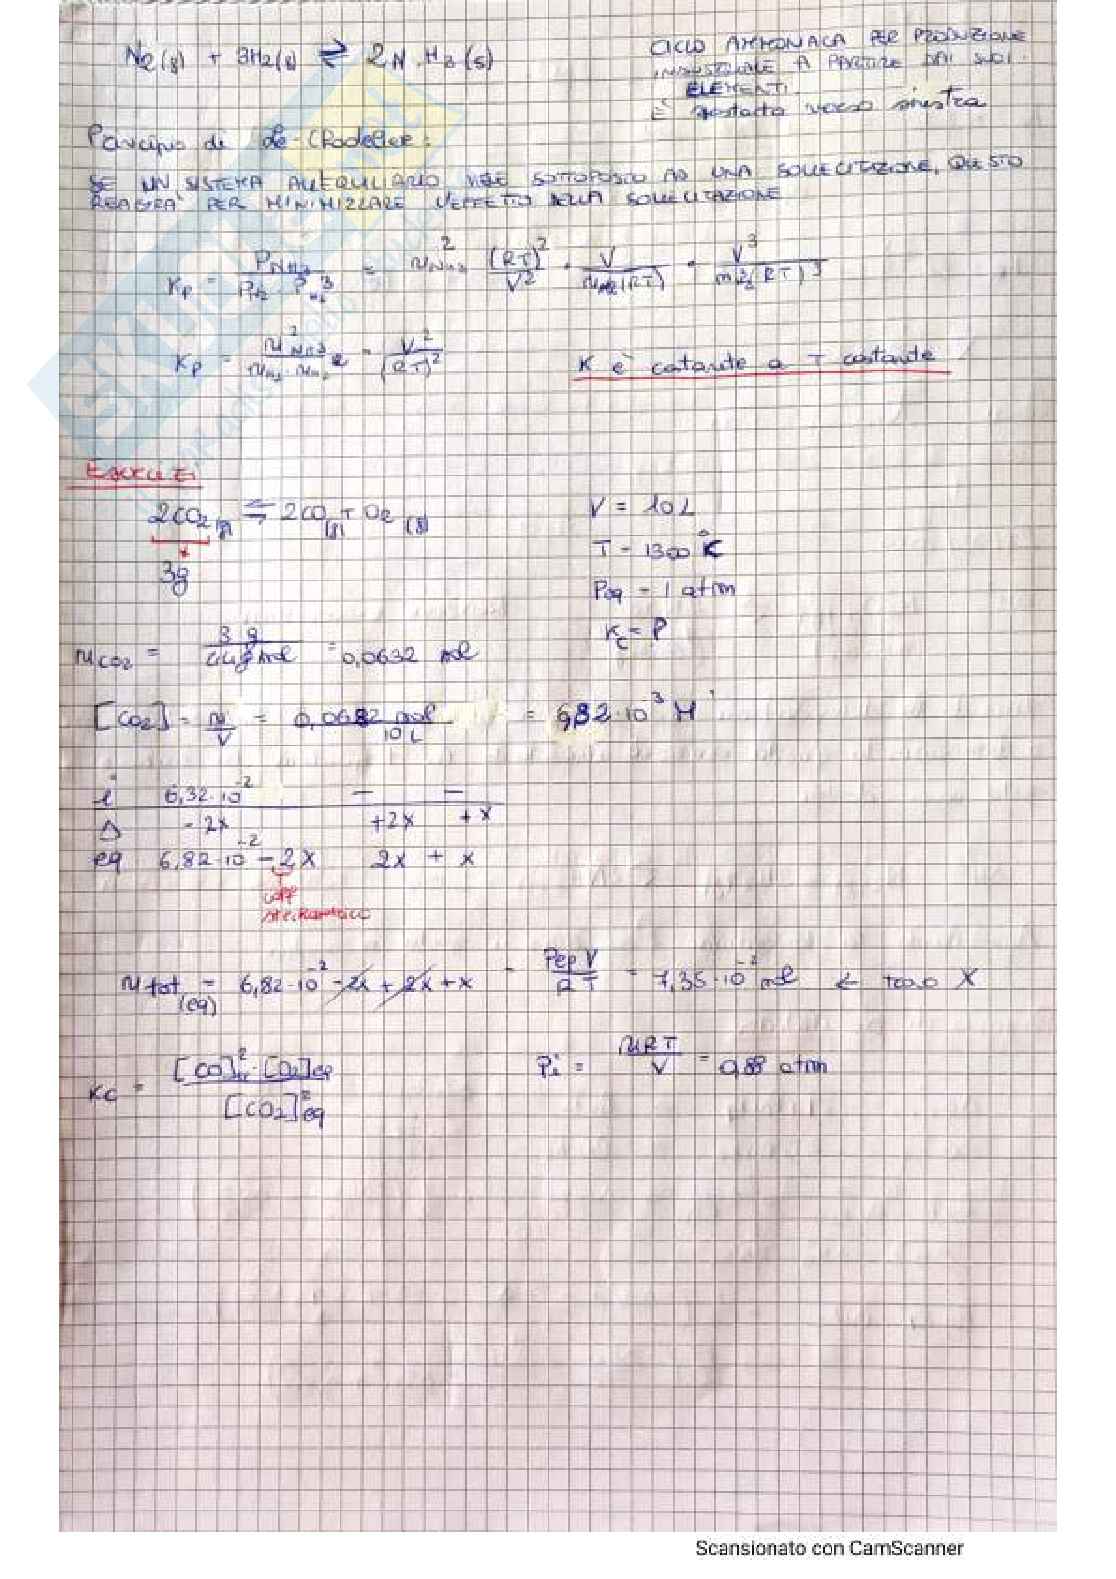 N2(g) + 3H2(g) ⇌ 2N H3(g)
CICLO AMMONIACA PER PRODUZIONE
INDUSTRIALE A PARTIRE DAI SUOI
ELEMENTI.
È spostata verso sinistra
Principio di Le-Chatelier:
SE UN SISTEMA ALL'EQUILIBRIO VIENE SOTTOPOSTO AD UNA SOLLECITAZIONE, QUESTO
REAGIRÀ PER MINIMIZZARE L'EFFETTO DELLA SOLLECITAZIONE
Kp = PNH3 / PN2 · PH2^3 = nNH3^2 (RT)^2 / V^2 · V / nN2(RT) · V^3 / nH2^3(RT)^3
Kp = nNH3^2 / nN2 · nH2 = V^2 / (RT)^2
K è costante a T costante
ESERCIZI
2CO2(g) ⇌ 2CO(g) + O2(g)
3g
V = 10 L
T = 1300 °K
Peq = 1 atm
Kc = ?
nCO2 = 3 g / 44 g/mol = 0,0632 mol
[CO2] = n / V = 0,0682 mol / 10 L = 6,82·10^-3 M
i 6,32·10^-2 — —
Δ -2x +2x +x
eq 6,82·10^-2 - 2x 2x + x
coeff
stechiometrico
n tot (eq) = 6,82·10^-2 - 2x + 2x + x = Peq V / R T = 7,35·10^-2 mol ← trovo X
Kc = [CO]^2eq · [O2]eq / [CO2]^2eq
Pi = nRT / V = 0,88 atm
SKUOLA.net
Scansionato con CamScanner